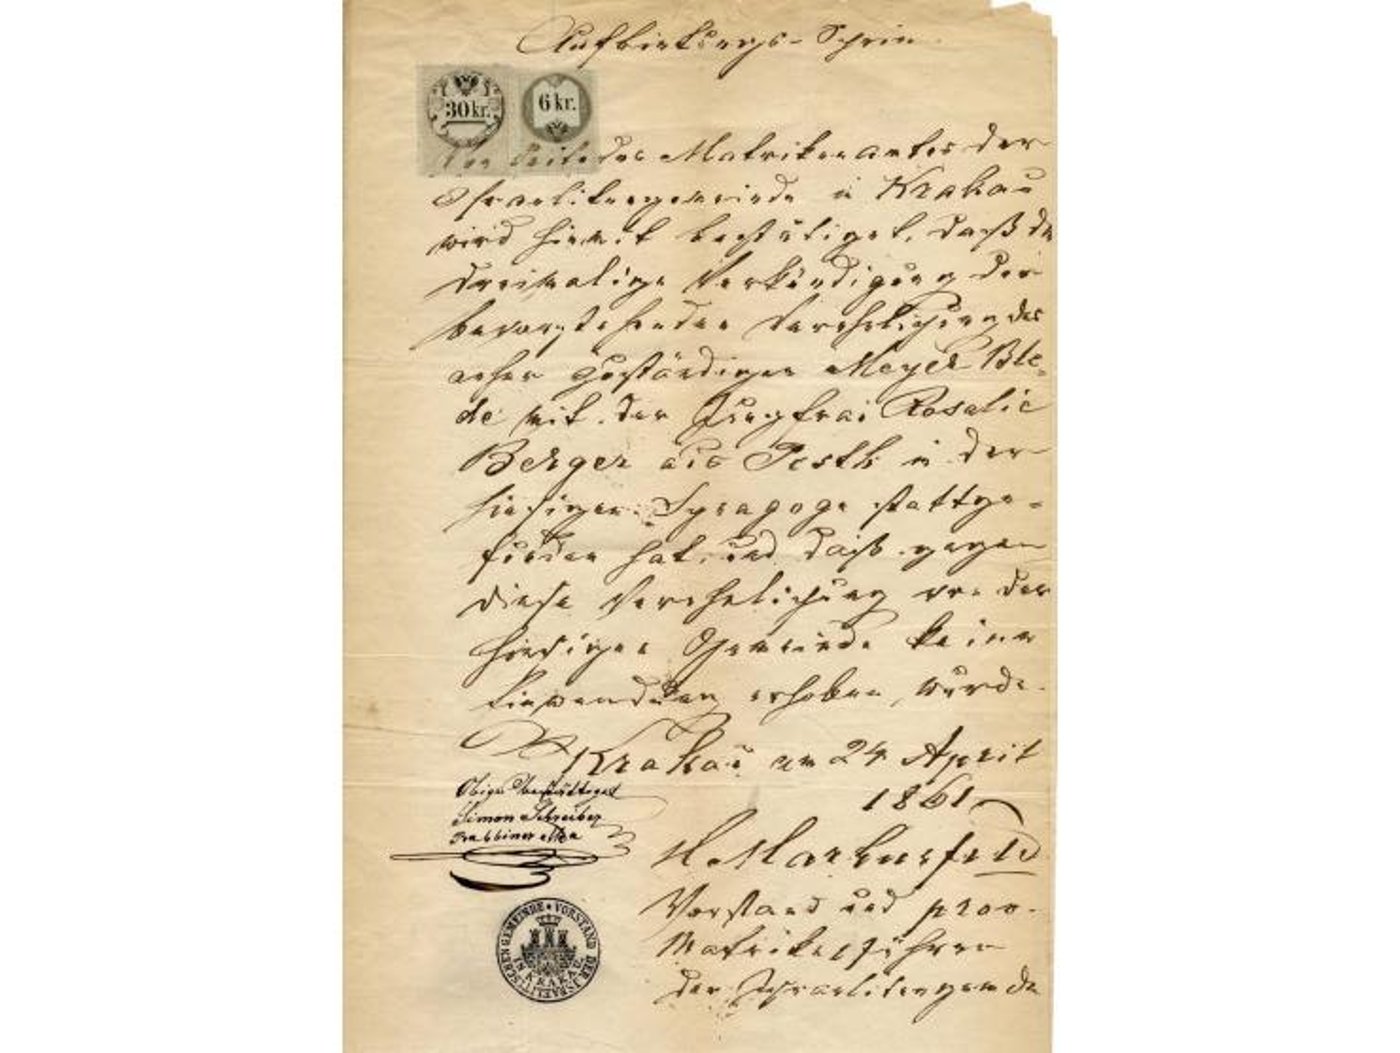 Aufbietungs-Schein
30 kr. 6 kr.
Von Seite des Matrikenamtes der
Israelitengemeinde in Krakau
wird hiemit bestätiget, daß die
dreimalige Verkündigung der
bevorstehenden Verehelichung des
anher zuständigen Meyer Ble-
de mit der Jungfrau Rosalie
Berger aus Pesth in der
hiesigen Synagoge stattge-
funden hat, und daß gegen
diese Verehelichung von der
hiesigen Gemeinde keine
Einwendung erhoben wurde.
Krakau am 24 April
1861
Obiges bestättiget
Simon Schreiber
Rabbiner
H. Markusfeld
Vorstand und prov.
Matrikenführer
der Israelitengemde
VORSTAND DER ISRAELITISCHEN GEMEINDE
IN KRAKAU